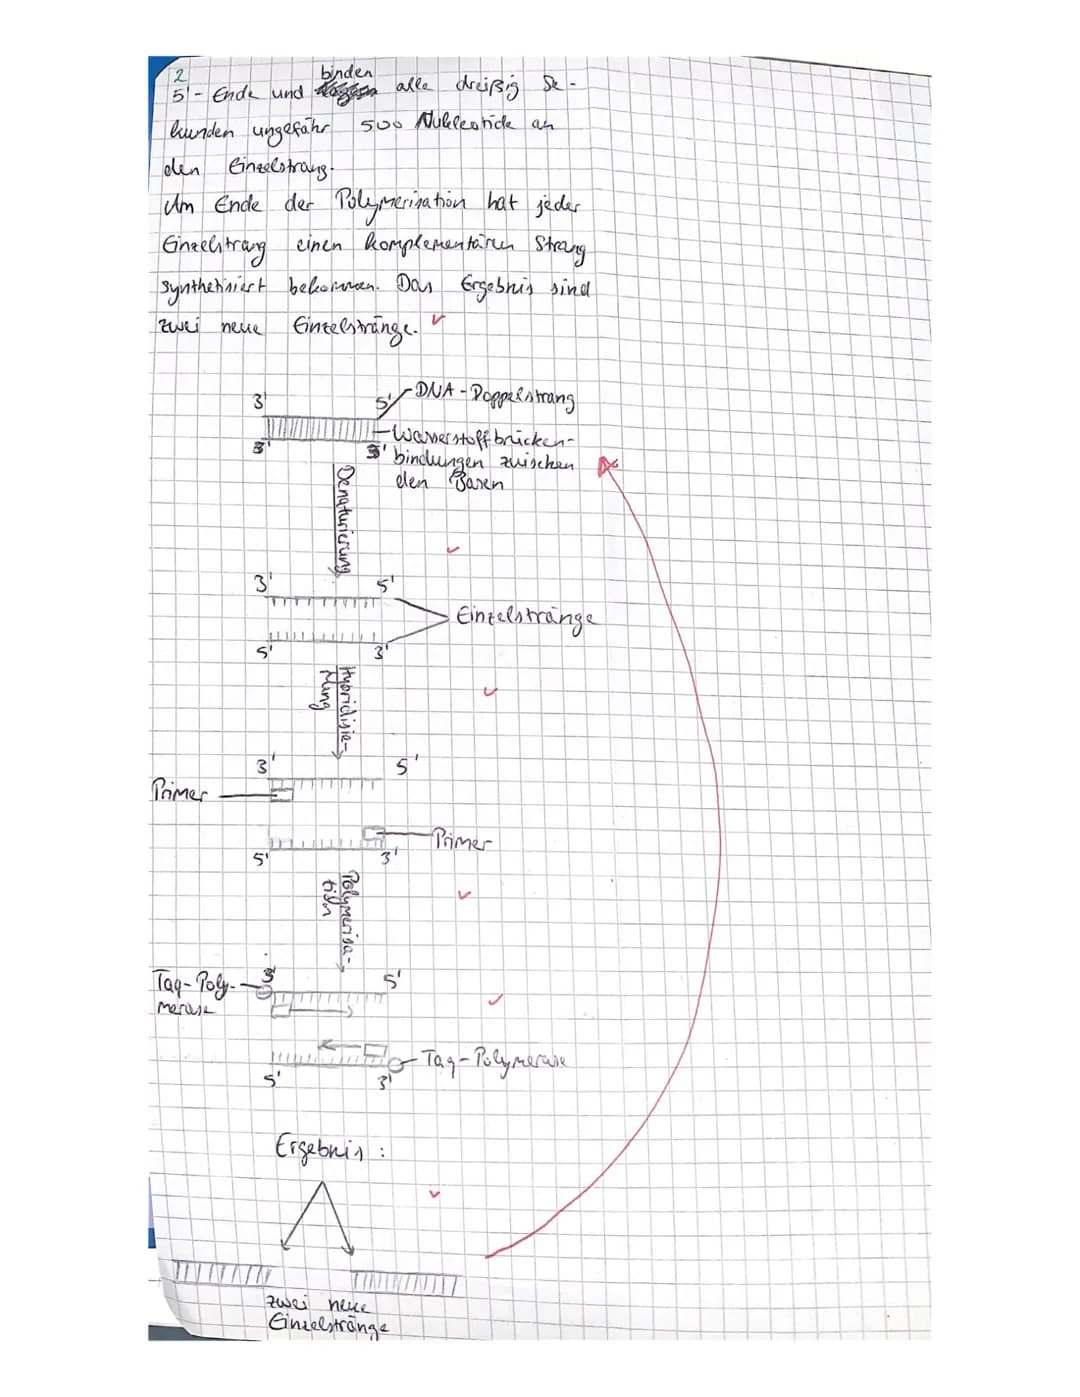 2
binden
5'- Ende und alle dreißig Se-
kunden ungefähr 500 Nukleotide an
den Einzelstrang.
Am Ende der Polymerisation hat jeder
Einzelstrang einen komplementären Strang
synthetisiert bekommen. Das Ergebnis sind
zwei neue Einzelstränge.
3' 5' DNA-Doppelstrang
Wasserstoffbrücken-
3' bindungen zwischen
den Basen
Denaturierung
3' 5'
Einzelstränge
5' 3'
Hybridisie-
rung
3' 5'
Primer
Primer
5' 3'
Polymerisa-
tion
3' 5'
Taq-Poly-
merase
Taq-Polymerase
5' 3'
Ergebnis:
zwei neue
Einzelstränge